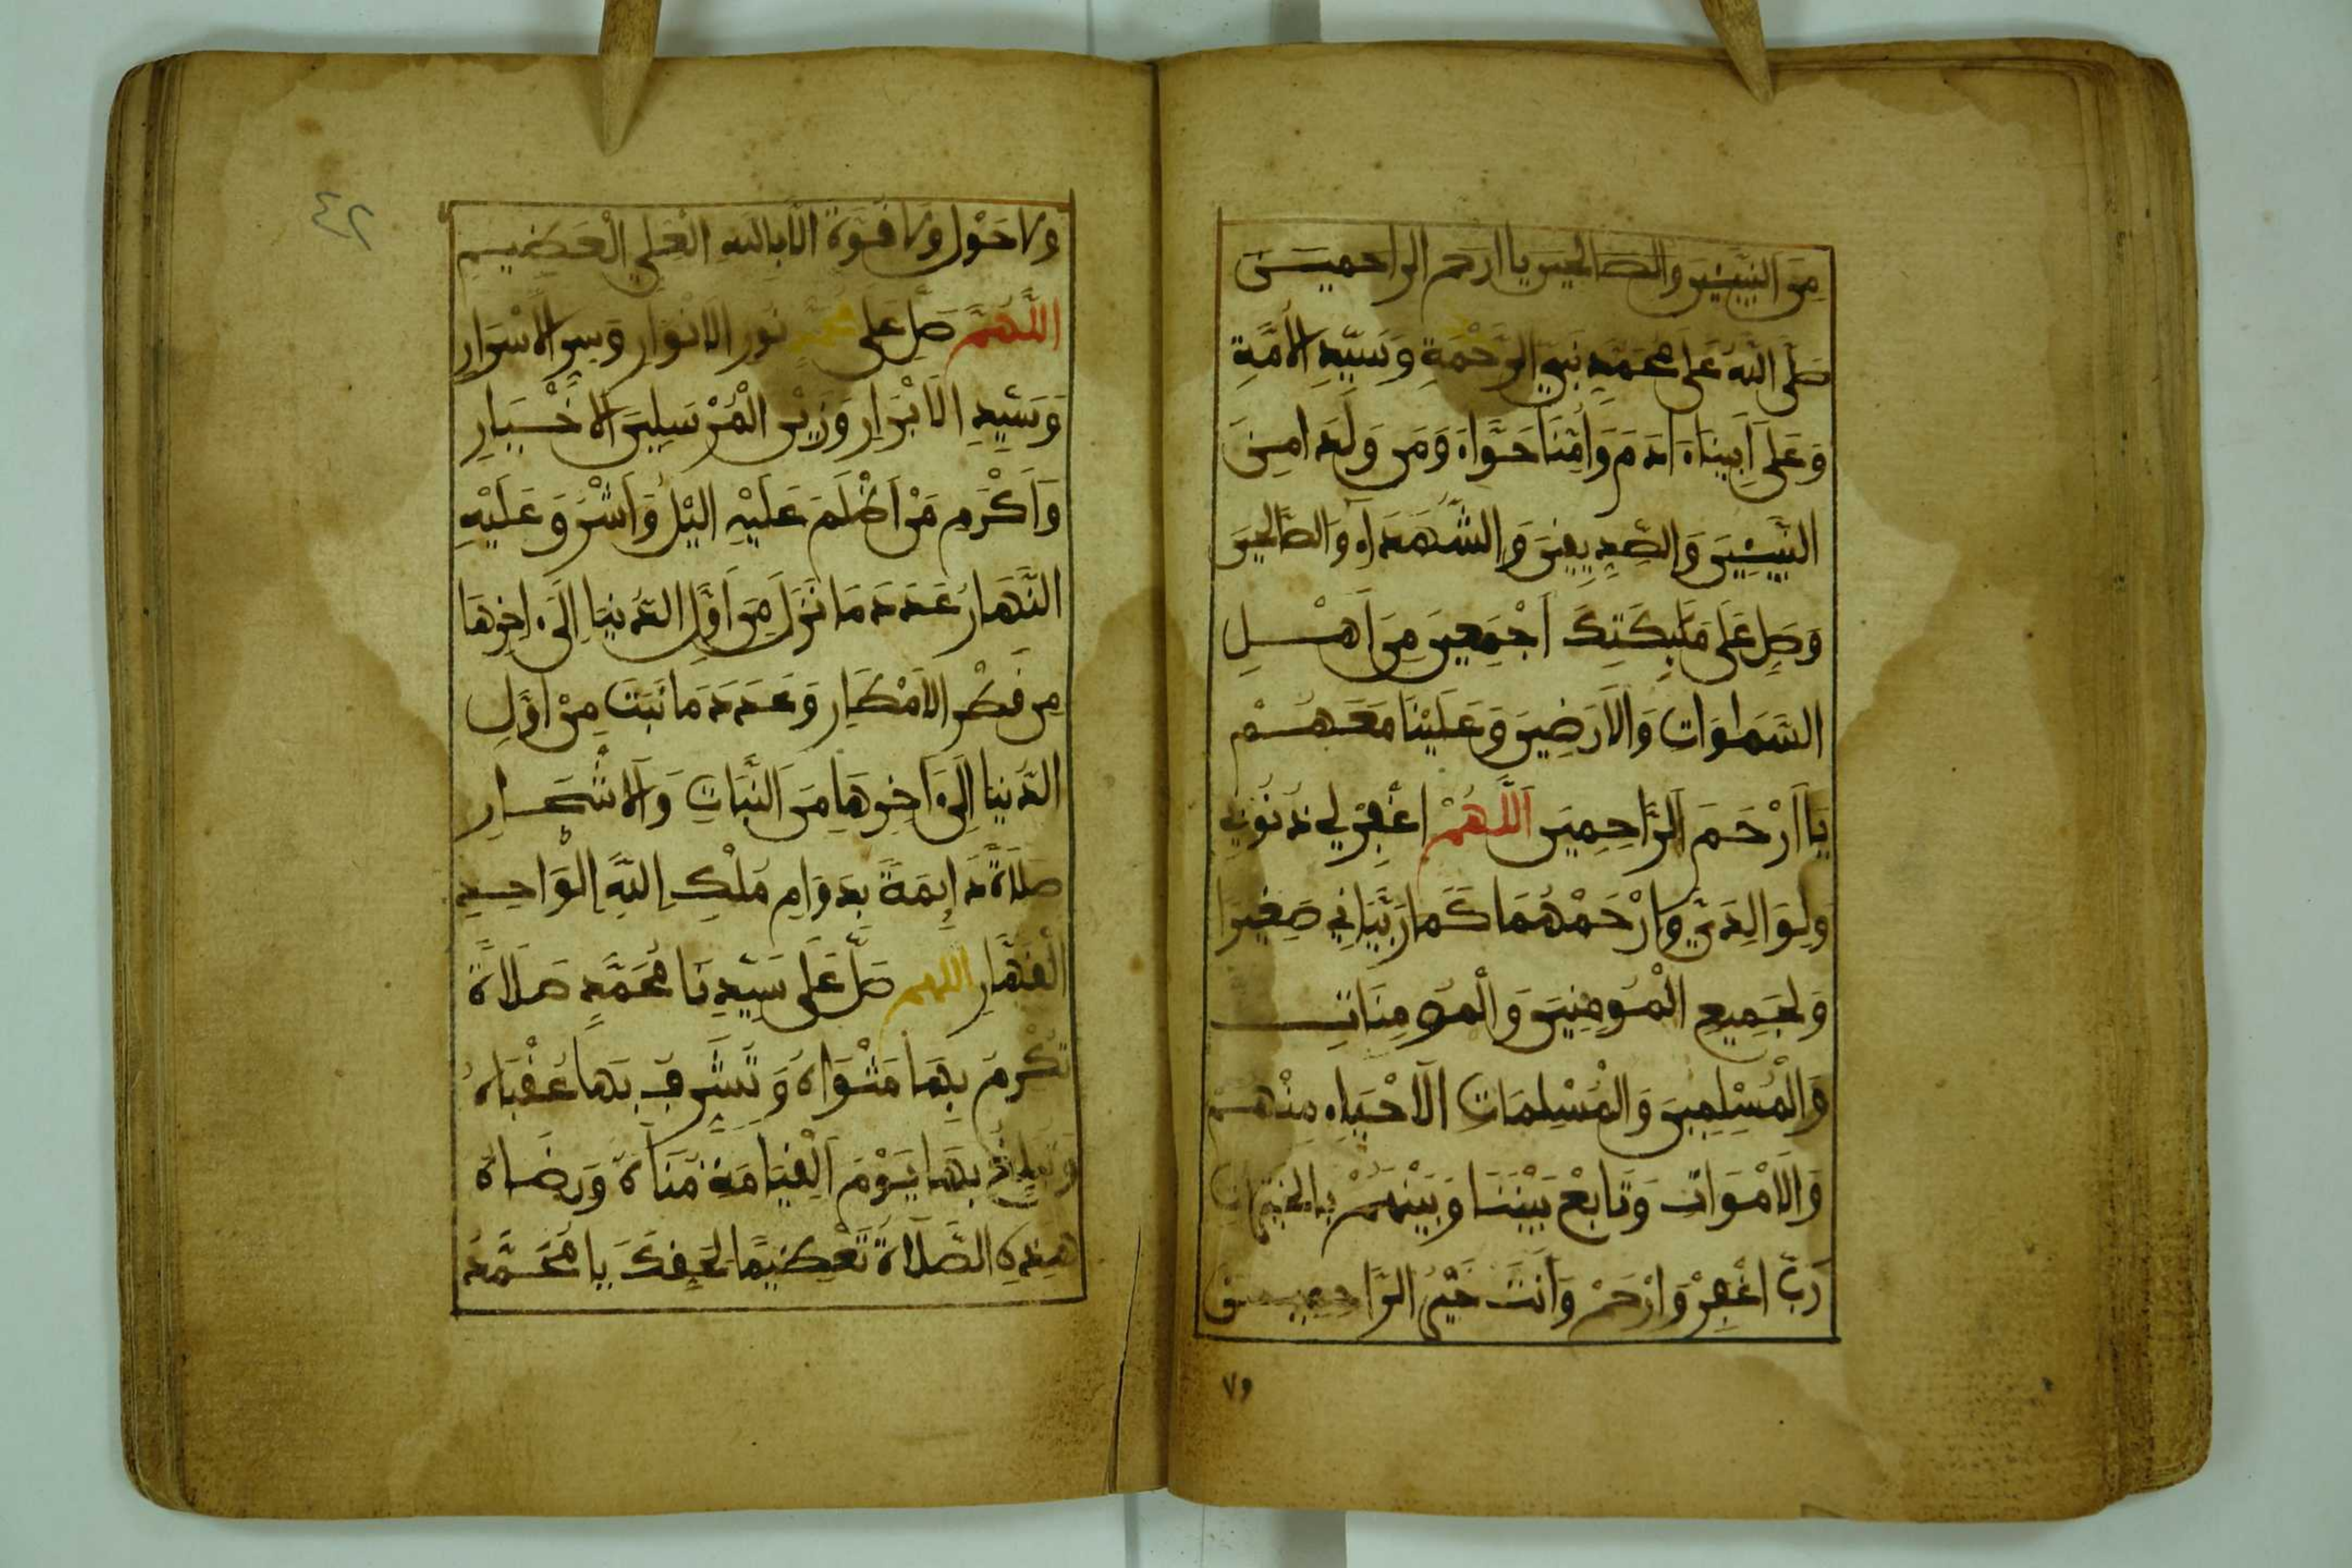 مِنَ النَّبِيِّينَ وَالصَّالِحِينَ يَا ارْحَمَ الرَّاحِمِيــنَ
صَلَّى اللهُ عَلَى مُحَمَّدٍ نَبِيِّ الرَّحْمَةِ وَسَيِّدِ الْأُمَّةِ
وَعَلَى أَبِينَاءَ ادَمَ وَأُمِّنَا حَوَّاءَ وَمَن وَلَدَ امِنَ
النَّبِيِّينَ وَالصِّدِيقِينَ وَالشُّهَدَآءِ وَالصَّالِحِينَ
وَصَلِّ عَلَى مَلَٰئِكَتِكَ أَجْمَعِينَ مِنَ أَهْــلِ
السَّمَٰوَاتِ وَالَارَضِينَ وَعَلَيْنَا مَعَهُــمْ
يَا أَرْحَمَ الرَّاحِمِينَ اَللَّهُمَّ اغْفِرْ لِي ذُنُوبِي
وَلِوَالِدَيَّ وَارْحَمْهُمَا كَمَا رَبَّيَانِي صَغِيرًا
وَلِجَمِيعِ الْمُومِنِينَ وَالْمُومِنَاتِ
وَالْمُسْلِمِينَ وَالْمُسْلِمَاتِ الَاحْيَاءِ مِنْهُــمْ
وَالَامْوَاتِ وَتَابِعْ بَيْنَنَا وَبَيْنَهُمْ بِالْخَيْرَاتِ
رَبِّ اغْفِرْ وَارْحَمْ وَأَنتَ خَيْرُ الرَّاحِمِيــنَ
٧٩
٤٢
وَلَا حَوْلَ وَلَا قُوَّةَ الَّا بِاللهِ الْعَلِيِّ الْعَظِيمِ
اللَّهُمَّ صَلِّ عَلَى مُحَمَّدٍ نُورِ الَانْوَارِ وَسِرِّ الَاسْرَارِ
وَسَيِّدِ الَابْرَارِ وَزَيْنِ الْمُرْسَلِينَ الَاخْــيَارِ
وَأَكْرَمِ مَنْ أَظْلَمَ عَلَيْهِ اليْلُ وَأَشْرَقَ عَلَيْهِ
النَّهَارُ عَدَدَ مَا نَزَلَ مِنَ أَوَّلِ الدُّنْيَا إِلَىٰ اخِرِهَا
مِن قَطْرِ الَامْطَارِ وَعَدَدَ مَا نَبَتَ مِنْ أَوَّلِ
الدُّنْيَا إِلَىٰ اخِرِهَا مِنَ النَّبَاتِ وَالَاشْجَــارِ
صَلَاةً دَائِمَةً بِدَوَامِ مُلْكِ اللهِ الْوَاحِــدِ
الْقَهَّارِ اللهم صَلِّ عَلَى سَيِّدِنَا مُحَمَّدٍ صَلَاةً
تُكْرِمُ بِهَا مَثْوَاهُ وَتُشَرِّفُ بِهَا عُقْبَاهُ
وَتُبَلِّغُ بِهَا يَوْمَ الْقِيَامَةِ مُنَاهُ وَرِضَاهُ
هَذِهِ الصَّلَاةُ تَعْظِيمًا لِحَقِّكَ يَا مُحَــمَّدُ